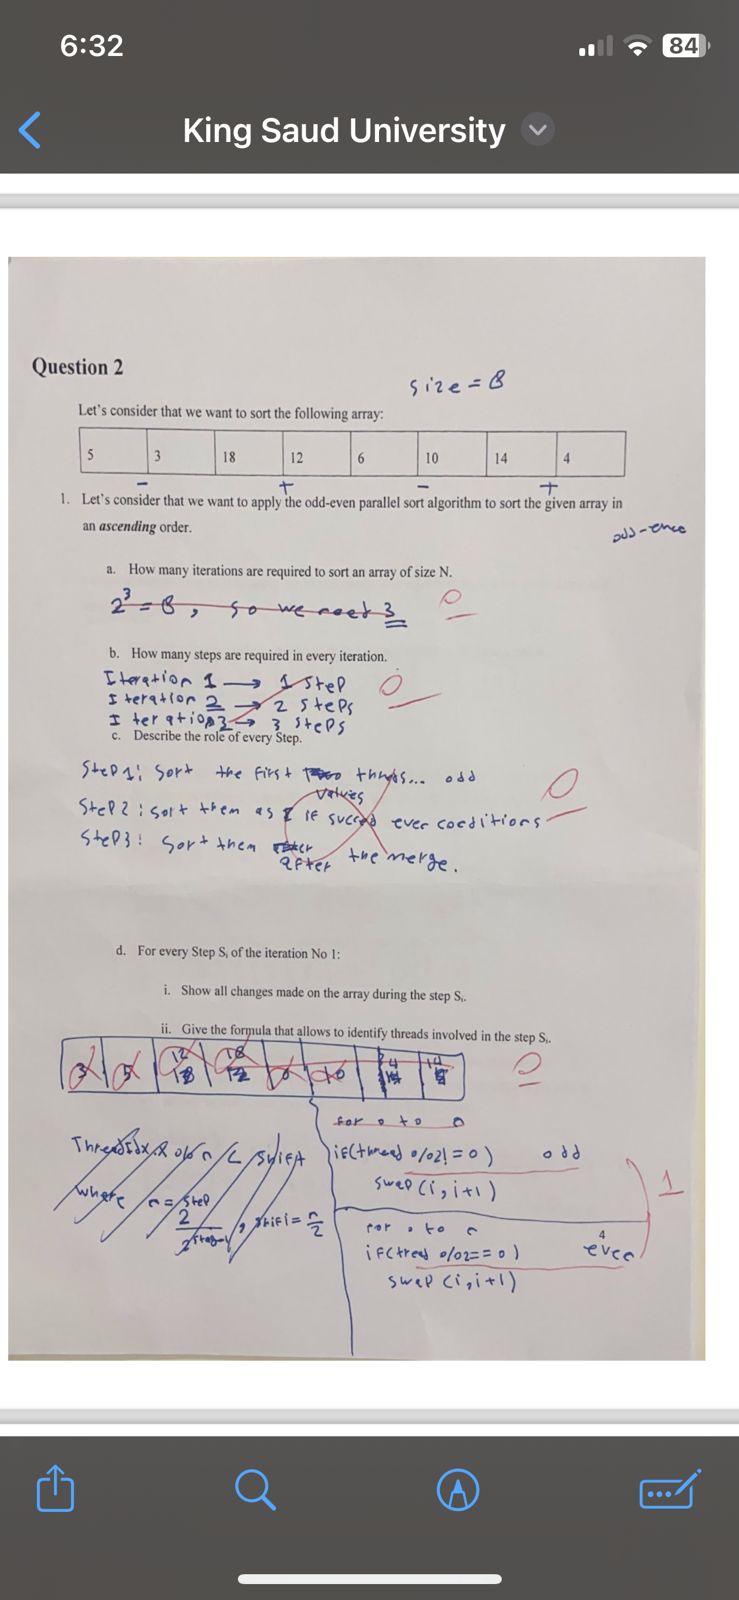 6:32
84
King Saud University
Question 2
size = 8
Let's consider that we want to sort the following array:
5 3 18 12 6 10 14 4
- + - +
1. Let's consider that we want to apply the odd-even parallel sort algorithm to sort the given array in
an ascending order.
a. How many iterations are required to sort an array of size N.
2³ = 8, so we need 3
0
b. How many steps are required in every iteration.
Iteration 1 → 1 step
Iteration 2 → 2 steps
Iteration 3 → 3 steps
0
c. Describe the role of every Step.
Step 1: Sort the first odd
values
Step 2: Sort them as if even conditions
0
Step 3: Sort them after the merge.
d. For every Step Sᵢ of the iteration No 1:
i. Show all changes made on the array during the step Sᵢ.
ii. Give the formula that allows to identify threads involved in the step Sᵢ.
0
for 0 to n
if(thread %2!=0) odd
swap(i,i+1)
1
where n = step
2
, shift = n/2
for 0 to n
if(tread %2==0) even
swap(i,i+1)
4